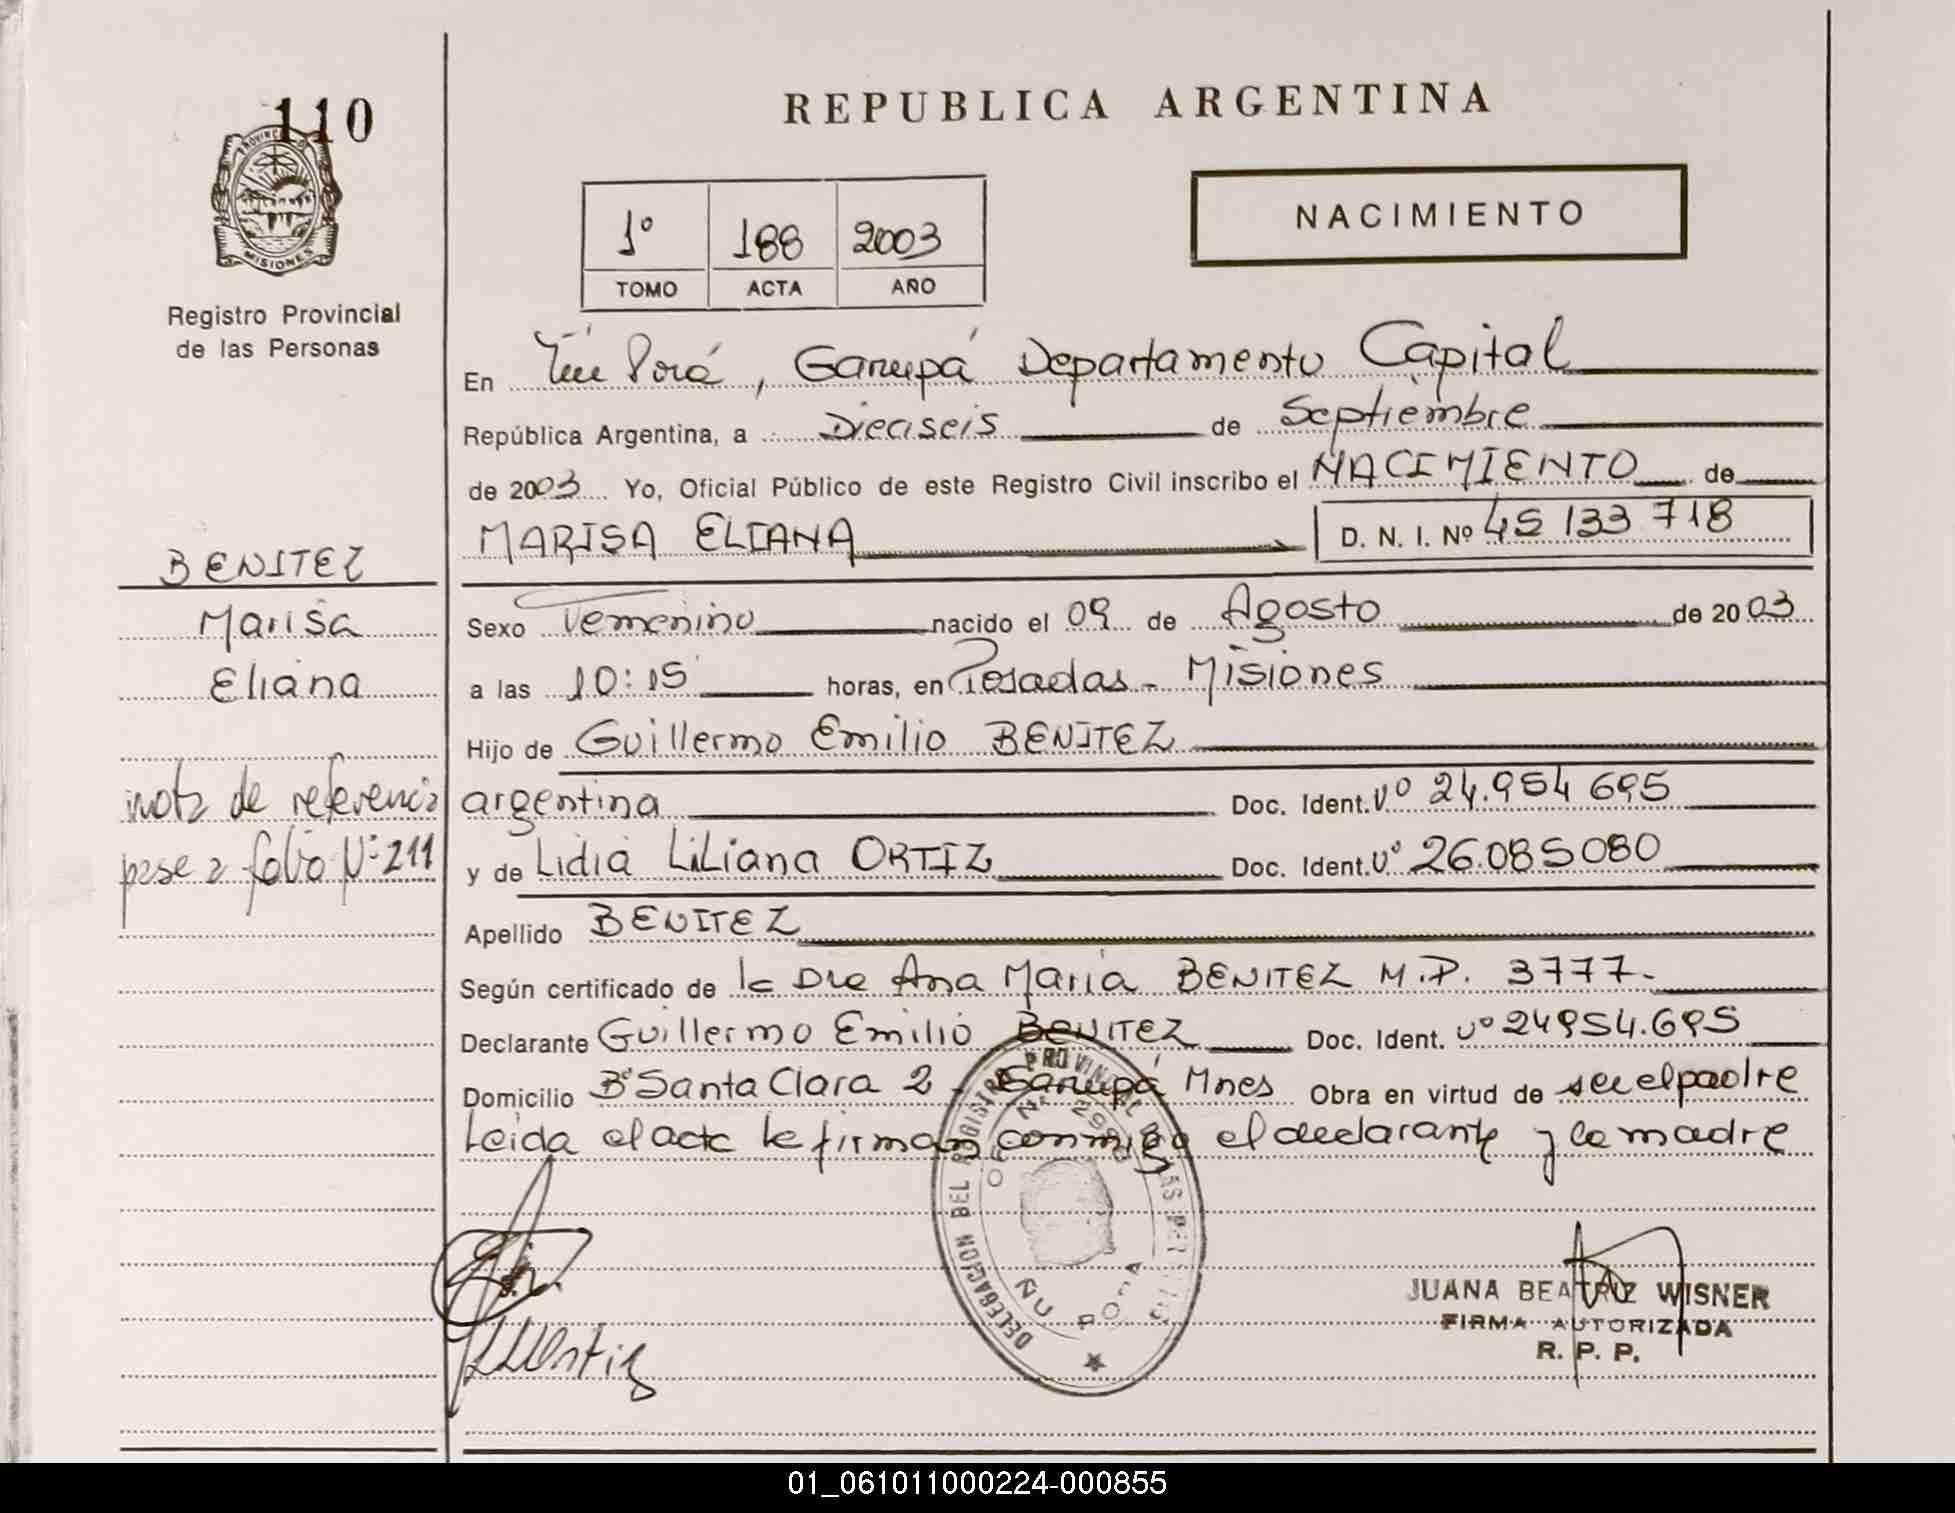 110
PROVINCIA DE
MISIONES
Registro Provincial
de las Personas
REPUBLICA ARGENTINA
NACIMIENTO
1º 188 2003
TOMO ACTA AÑO
En Ñu Porá, Garupá Departamento Capital
República Argentina, a Dieciseis de Septiembre
de 2003 Yo, Oficial Público de este Registro Civil inscribo el NACIMIENTO de
MARISA ELIANA D. N. I. Nº 45 133 718
BENITEZ
Marisa
Eliana
Sexo Femenino nacido el 09 de Agosto de 2003
a las 10:15 horas, en Posadas - Misiones
Hijo de Guillermo Emilio BENITEZ
argentina Doc. Ident. Nº 24.954 695
y de Lidia Liliana ORTIZ Doc. Ident. Nº 26.085080
nota de referencia
pase a folio Nº 211
Apellido BENITEZ
Según certificado de la Dra Ana María BENITEZ M.P. 3777.-
Declarante Guillermo Emilio BENITEZ Doc. Ident. Nº 24954.695
Domicilio Bº Santa Clara 2 - Garupá Mnes Obra en virtud de ser el padre
Leida el acta la firman conmigo el declarante y la madre
DELEGACION DEL REGISTRO PROVINCIAL DE LAS PERSONAS
ÑU PORA
JUANA BEATRIZ WISNER
FIRMA AUTORIZADA
R. P. P.
01_061011000224-000855